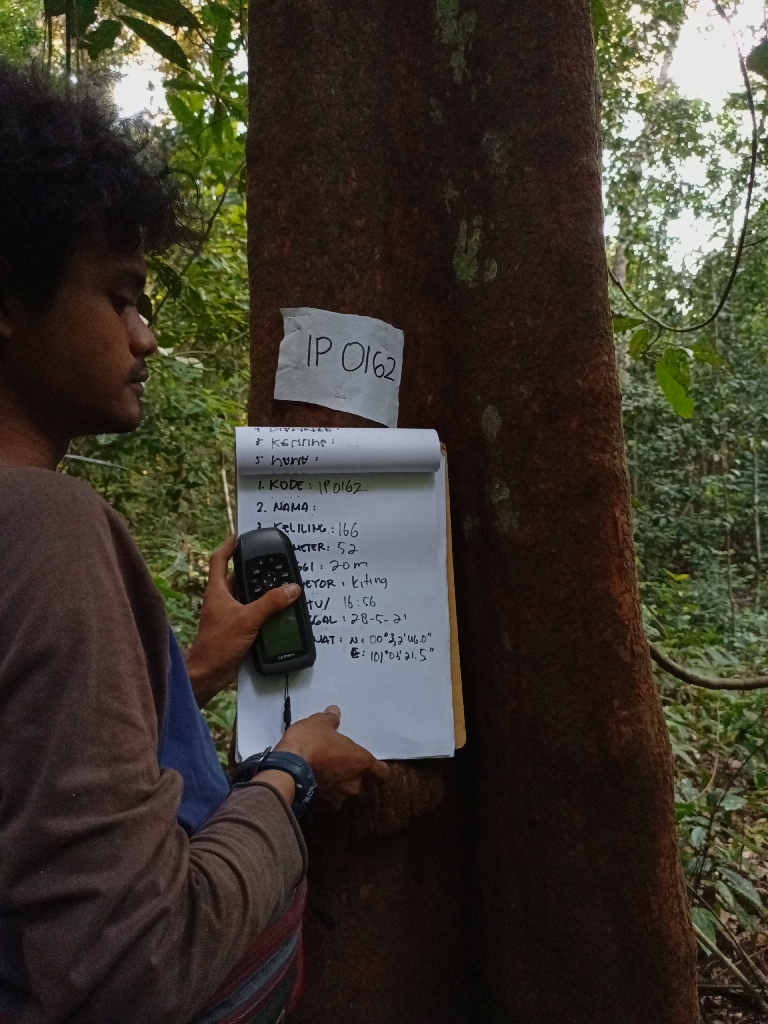 IP 0162
3. KELILING :
5. NAMA :
1. KODE : IP0162
2. NAMA :
3. KELILING : 166
METER : 52
GGI : 20 m
EYOR : Kiting
TU/ 16:56
GGAL : 28-5-21
NAT : N: 00°
E: 101°
GARMIN